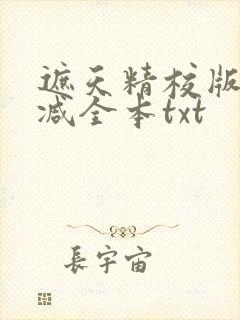 遮天精校版
减全本txt
長宇宙